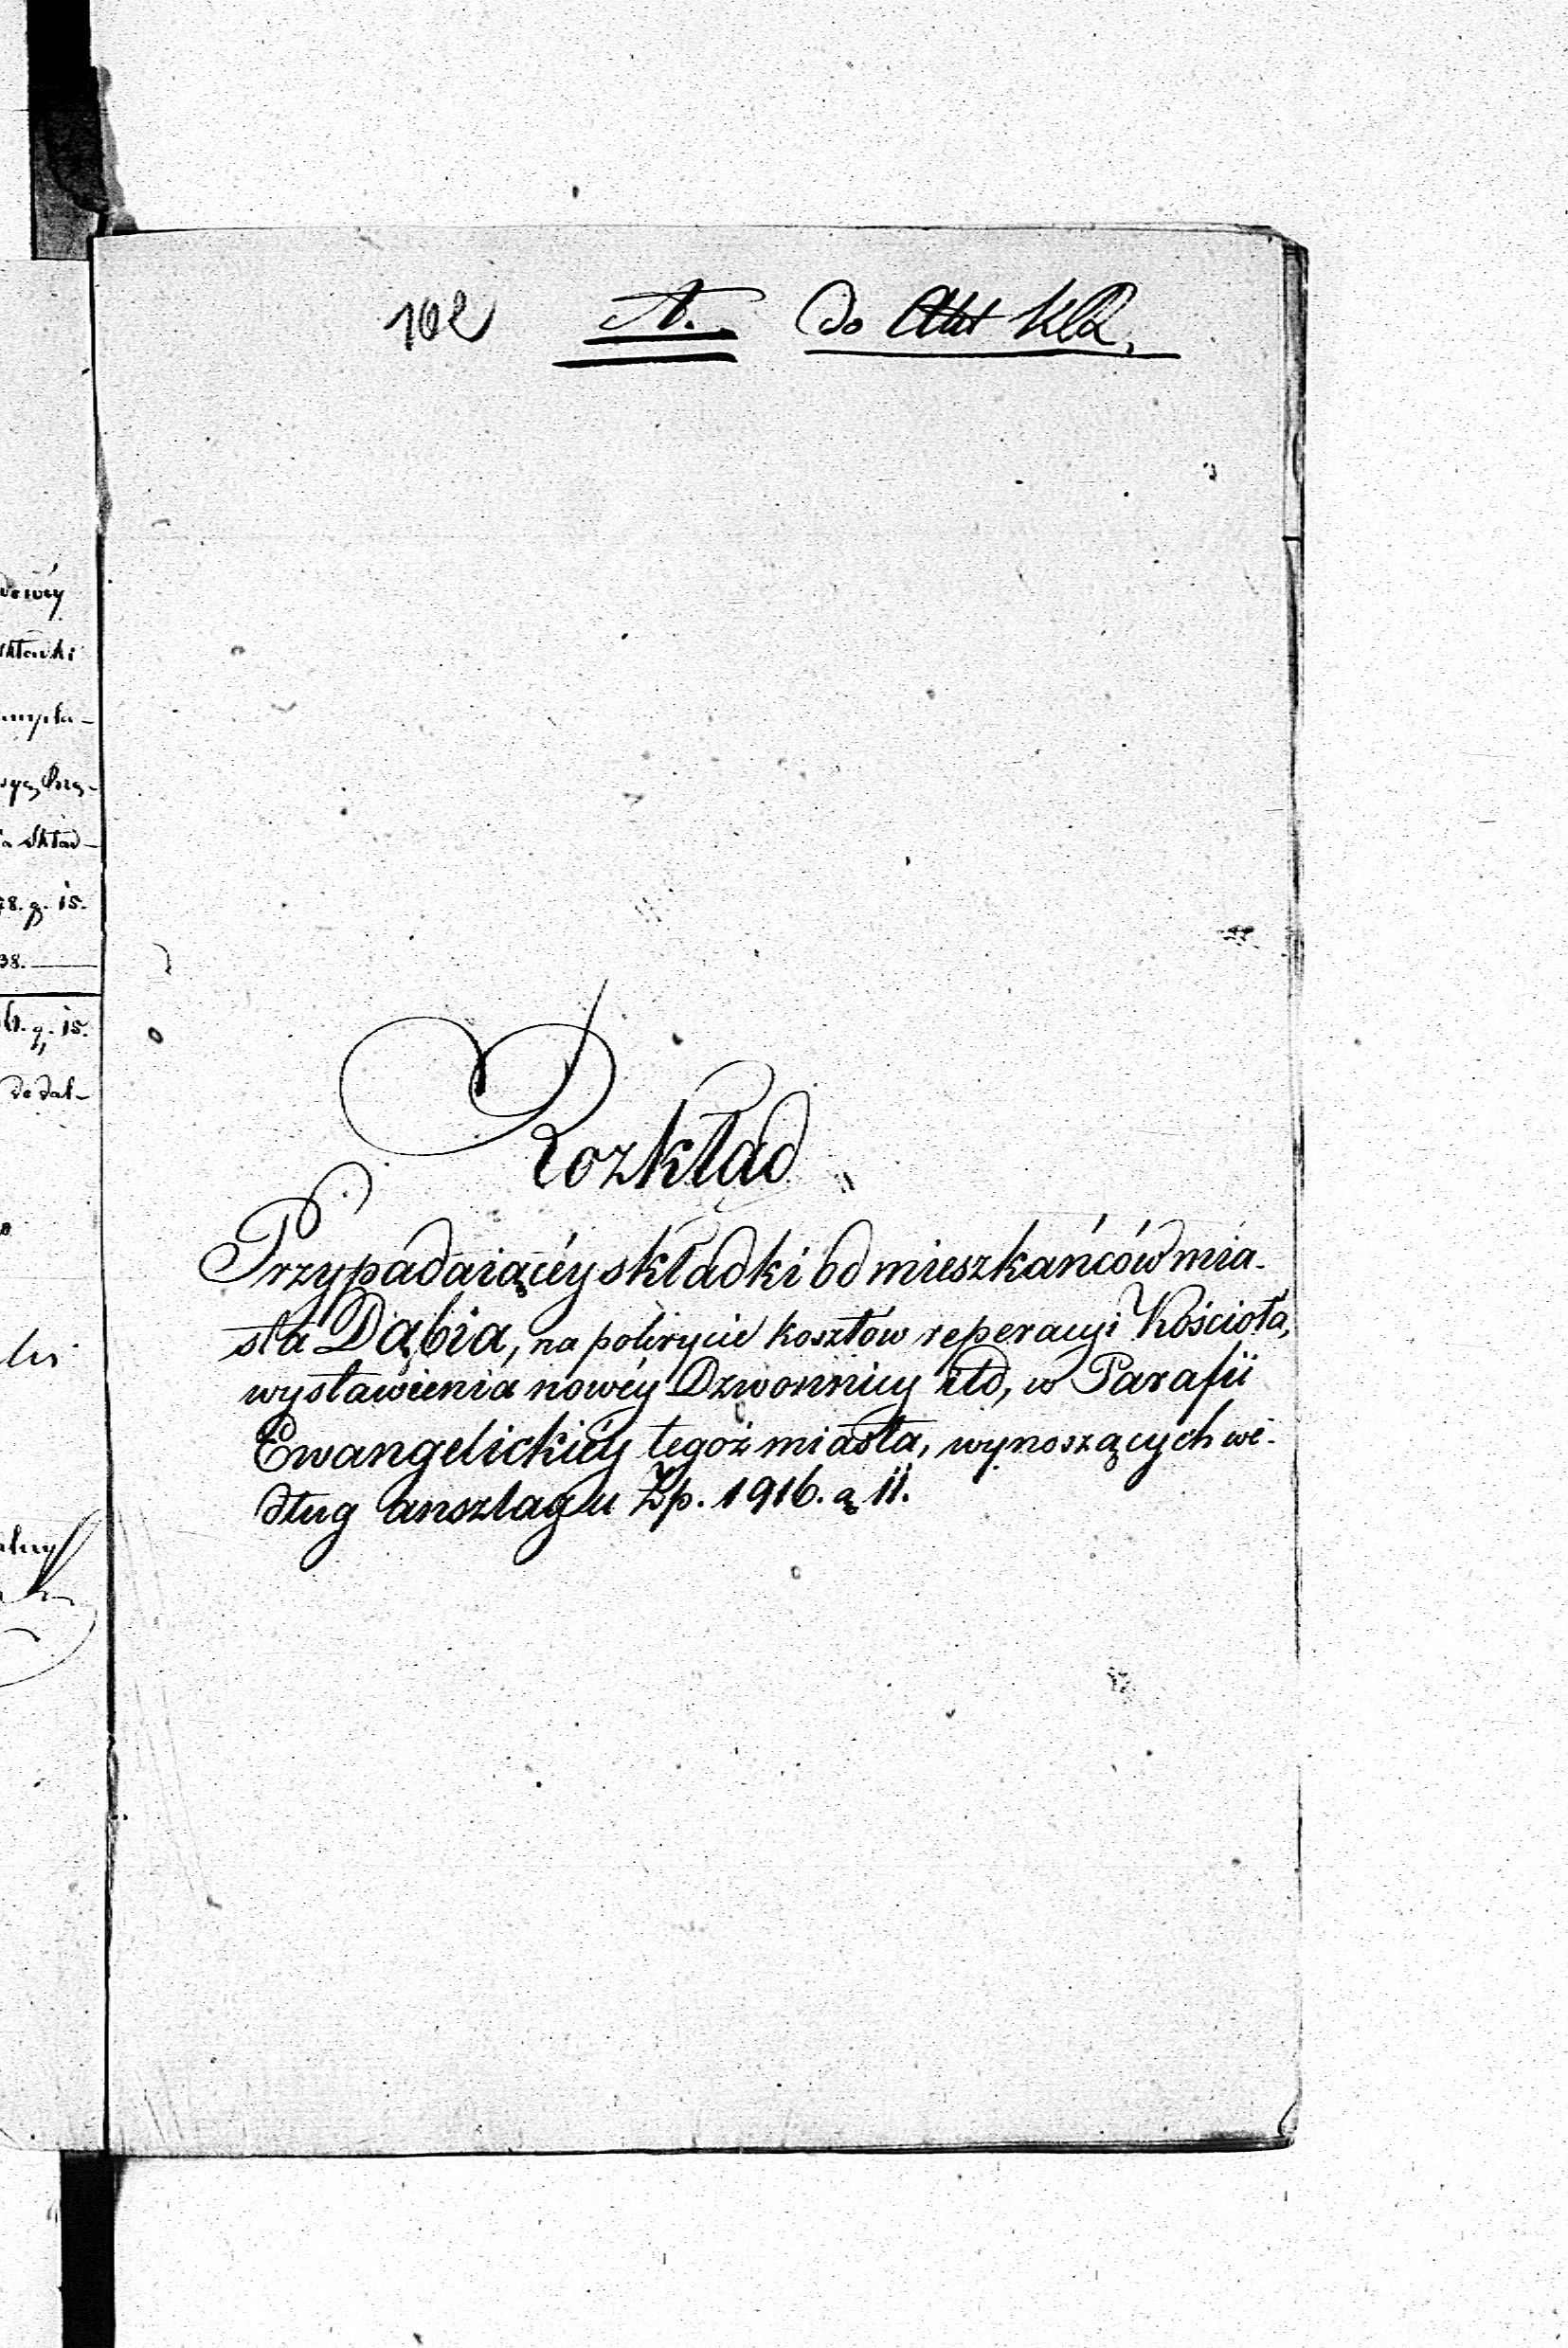 102 A. do Akt KR.
dowéy
składki
8. g. 15.
38.
6. g. 15.
Rozkład
Przypadaiącéy składki od mieszkańców mia-
sta Dąbia, na pokrycie kosztów reperacyi Kościoła,
wystawienia nowéy Dzwonnicy itd, w Parafii
Ewangelickiéy tegoż miasta, wynoszących we-
dług anszlagu Zp. 1916. g 11.